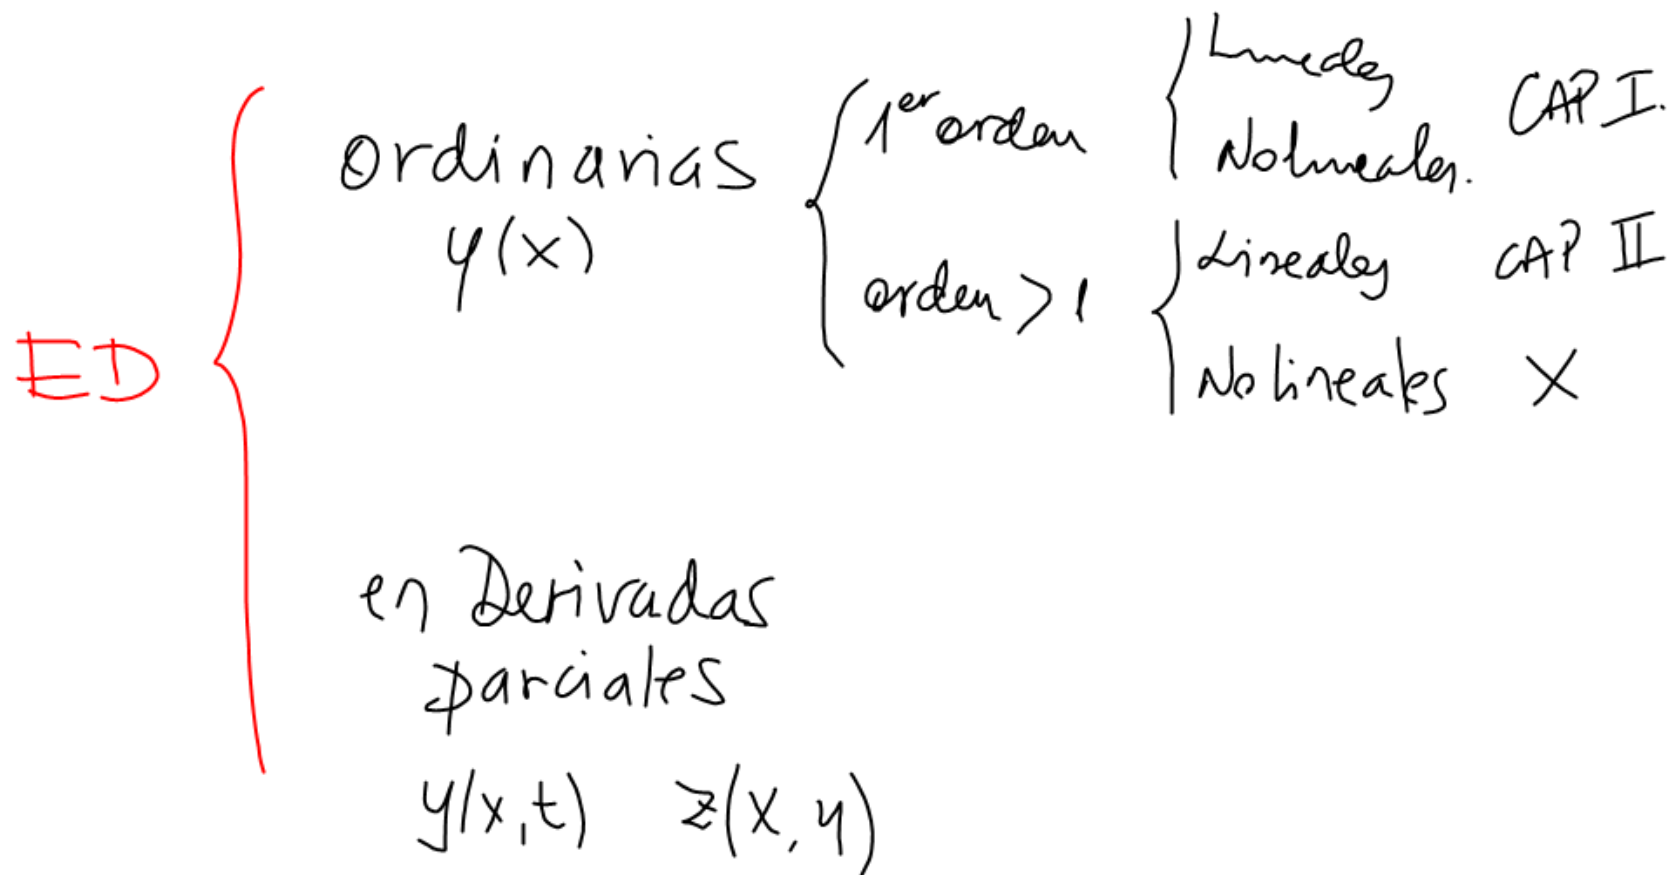 ED
ordinarias
y(x)
1er orden
Lineales
No lineales.
CAP I.
orden > 1
Lineales
CAP II
No lineales
X
en Derivadas
parciales
y(x,t) z(x,y)